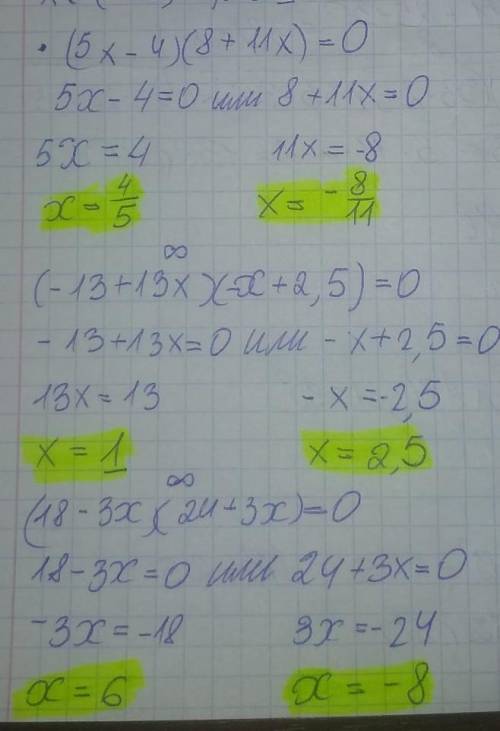 · (5x - 4)(8 + 11x) = 0
5x - 4 = 0 или 8 + 11x = 0
5x = 4 11x = -8
x = 4/5 x = - 8/11
∞
(-13 + 13x)(-x + 2,5) = 0
-13 + 13x = 0 или -x + 2,5 = 0
13x = 13 -x = -2,5
x = 1 x = 2,5
∞
(18 - 3x)(24 + 3x) = 0
18 - 3x = 0 или 24 + 3x = 0
-3x = -18 3x = -24
x = 6 x = -8